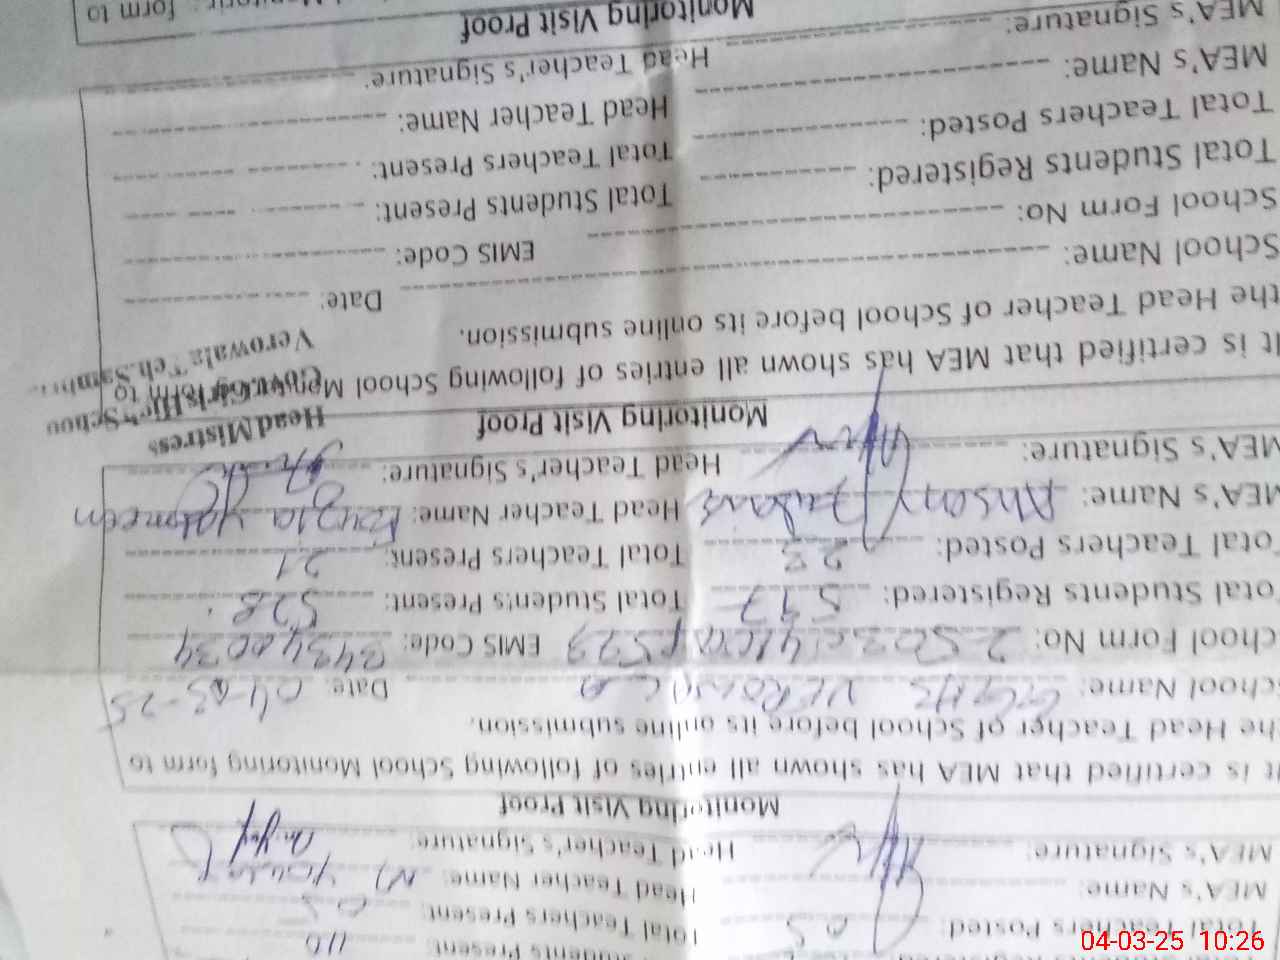 Total Students Present: 110
Total Teachers Posted: 05 Total Teachers Present: 05
MEA's Name: Head Teacher Name: M Yousaf
MEA's Signature: Head Teacher's Signature:
Monitoring Visit Proof
It is certified that MEA has shown all entries of following School Monitoring School form to
the Head Teacher of School before its online submission.
School Name: GGHS VEROWALA Date: 04-03-25
School Form No: EMIS Code: 34340034
Total Students Registered: 597 Total Students Present: 528
Total Teachers Posted: 23 Total Teachers Present: 21
MEA's Name: Ahsan Head Teacher Name: Fouzia Yasmeen
MEA's Signature: Head Teacher's Signature:
Head Mistress
Govt. Girls High School
Verowala Teh.
Monitoring Visit Proof
It is certified that MEA has shown all entries of following School Monitoring form to
the Head Teacher of School before its online submission.
School Name: Date:
School Form No: EMIS Code:
Total Students Registered: Total Students Present:
Total Teachers Posted: Total Teachers Present:
MEA's Name: Head Teacher Name:
MEA's Signature: Head Teacher's Signature:
Monitoring Visit Proof
form to
04-03-25 10:26